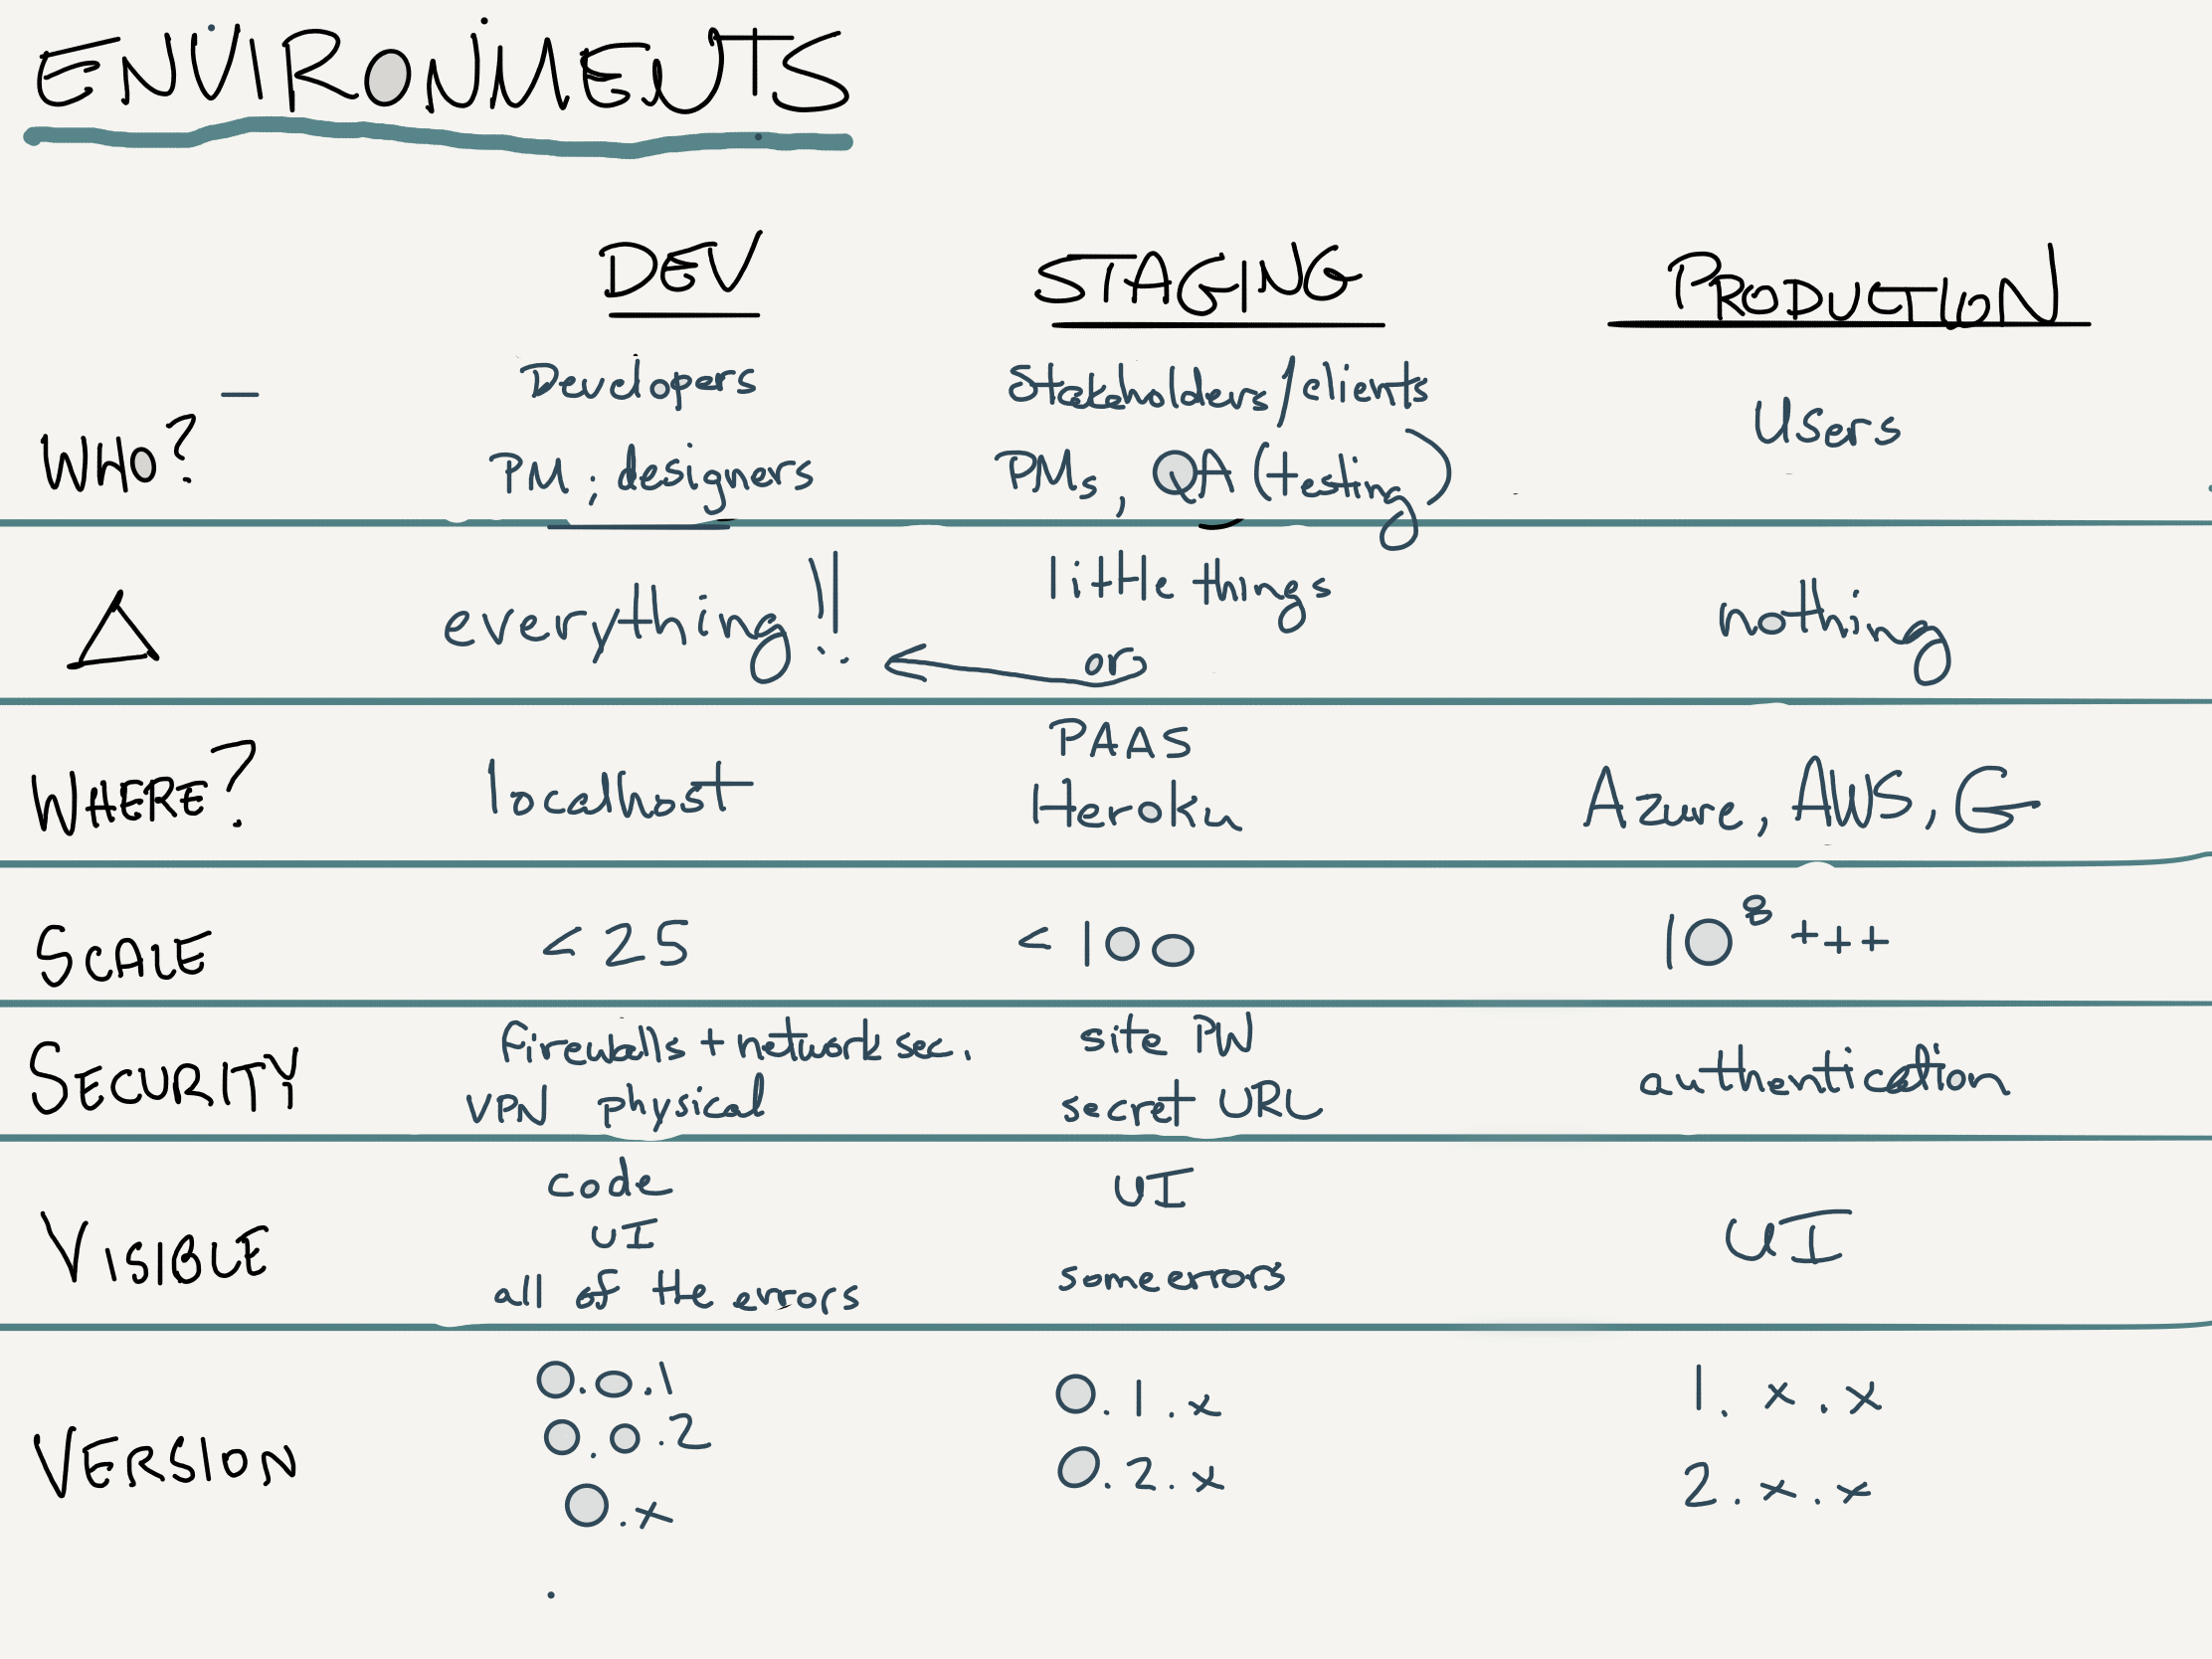 ENVIRONMENTS
DEV STAGING PRODUCTION
WHO?
Developers
PM, designers
Stakeholders/clients
PMs, QA (testing)
Users
Δ
everything!!
little things
or
nothing
WHERE?
localhost
PAAS
Heroku
Azure, AWS, G
SCALE
< 25
< 100
10⁸ +++
SECURITY
firewalls + network sec.
VPN physical
site PW
secret URL
authentication
VISIBLE
code
UI
all of the errors
UI
some errors
UI
VERSION
0.0.1
0.0.2
0.x
0.1.x
0.2.x
1.x.x
2.x.x